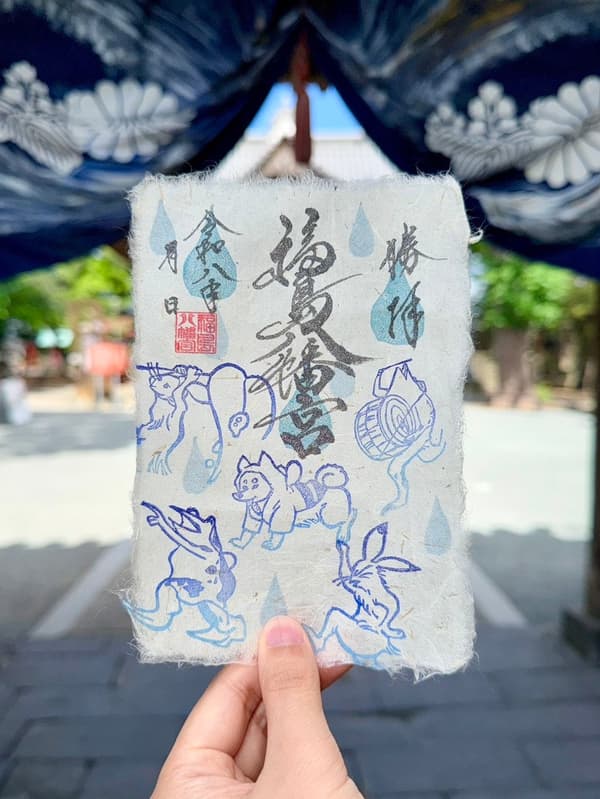 勝拝
福島八幡宮
令和八年
月 日
福島
八幡宮